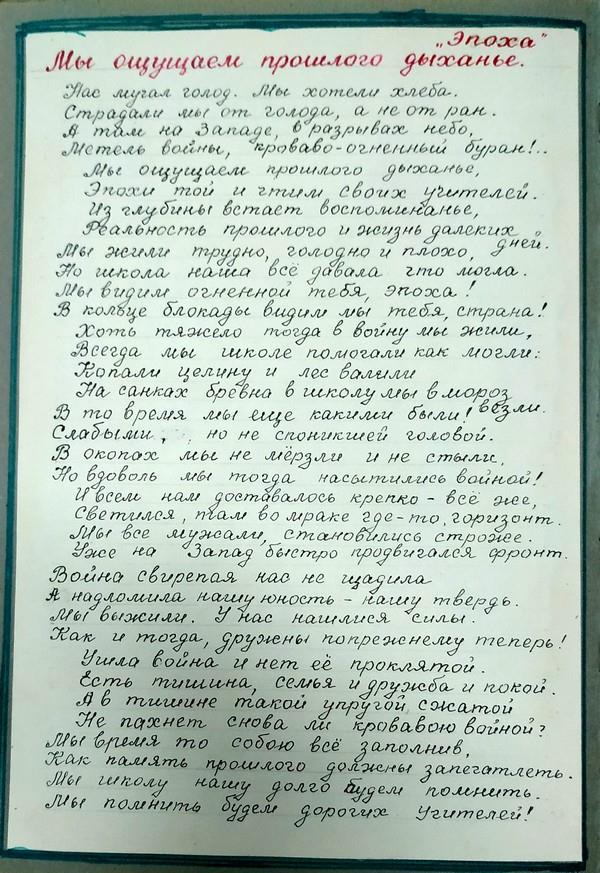 „Эпоха"
Мы ощущаем прошлого дыханье.
Нас мучал голод. Мы хотели хлеба.
Страдали мы от голода, а не от ран.
А там на Западе, в разрывах небо,
Метель войны, кроваво-огненный буран!..
Мы ощущаем прошлого дыханье,
Эпохи той и чтим своих учителей.
Из глубины встает воспоминанье,
Реальность прошлого и жизнь далеких
дней.
Мы жили трудно, голодно и плохо,
Но школа наша всё давала что могла.
Мы видим огненной тебя, эпоха!
В кольце блокады видим мы тебя, страна!
Хоть тяжело тогда в войну мы жили,
Всегда мы школе помогали как могли:
Копали целину и лес валили
На санках бревна в школу мы в мороз
везли.
В то время мы еще какими были!
Слабыми, но не споникшей головой.
В окопах мы не мёрзли и не стыли,
Но вдоволь мы тогда насытились войной!
И всем нам доставалось крепко - всё же,
Светился, там во мраке где-то, горизонт.
Мы все мужали, становились строжее.
Уже на Запад быстро продвигался фронт.
Война свирепая нас не щадила
А надломила нашу юность - нашу твердь.
Мы выжили. У нас нашлися силы.
Как и тогда, дружны попрежнему теперь!
Ушла война и нет её проклятой.
Есть тишина, семья и дружба и покой.
А в тишине такой упругой сжатой
Не пахнет снова ли кровавою войной?
Мы время то собою всё заполнив,
Как память прошлого должны запечатлеть.
Мы школу нашу долго будем помнить.
Мы помнить будем дорогих Учителей!